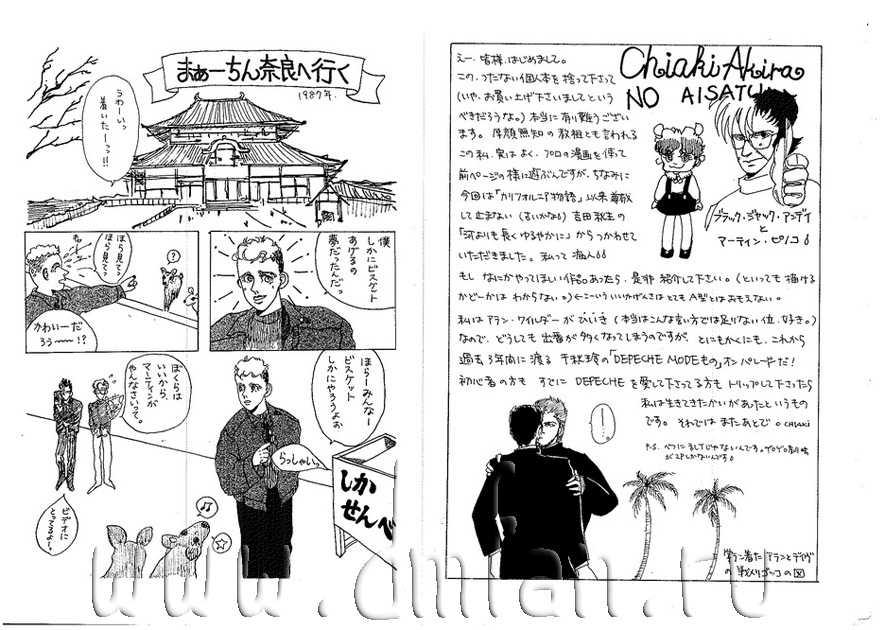 まぁーちん奈良へ行く
1987年.
うわーいっ
着いたーっっ!!!
ほら見て♪
ほら見て♪
?
かわいーだ
ろうー!?
僕
しかにビスケット
あげるの
夢だったんだっ
ぼくらは
いいから、
マーティンが
やんなさいって。
ほらーみんなー
ビスケット
しかにやろうよぉ
らっしゃいっ
しか
せんべ
ビデオに
とってるよー。
Chiaki Akira
NO AISATU
えー、皆様、はじめまして。
この、つたない個人本を捨って下さって
(いや、お買い上げ下さいましてという
べきだろうな。)本当に有り難うござい
ます。厚顔無知の教祖とも言われる
この私、実はよく、プロの漫画を使って
前ページの様に遊ぶんですが、ちなみに
今回は「カリフォルニア物語」以来尊敬
して止まない(るいかなる)吉田秋生の
「河よりも長くゆるやかに」からつかわせて
いただきました。私って
もし なにかやってほしい作品あったら、是非 紹介して下さい。(といっても描ける
かどーかは わからない。)←こーいういいかげんさは とても A型とはおもえない。
私はアラン・ワイルダーが びいき (本当はこんな言い方では足りない位、好き。)
なので、どうしても 出番が多くなってしまうのですが、とにもかくにも、これから
過去3年間に渡る 千秋玲の「DEPECHE MODEもの」オンパレードだ!
初心者の方も すでに DEPECHE を愛して下さってる方も トリップして下さったら
私は生きてきたかいがあったというもの
です。それでは またあとで。CHIAKI
ブラック・ジャック・アンディ
と
アーティン・ピノコ
!
P.S.
アランとデイヴ
の
www.dmfan.ru